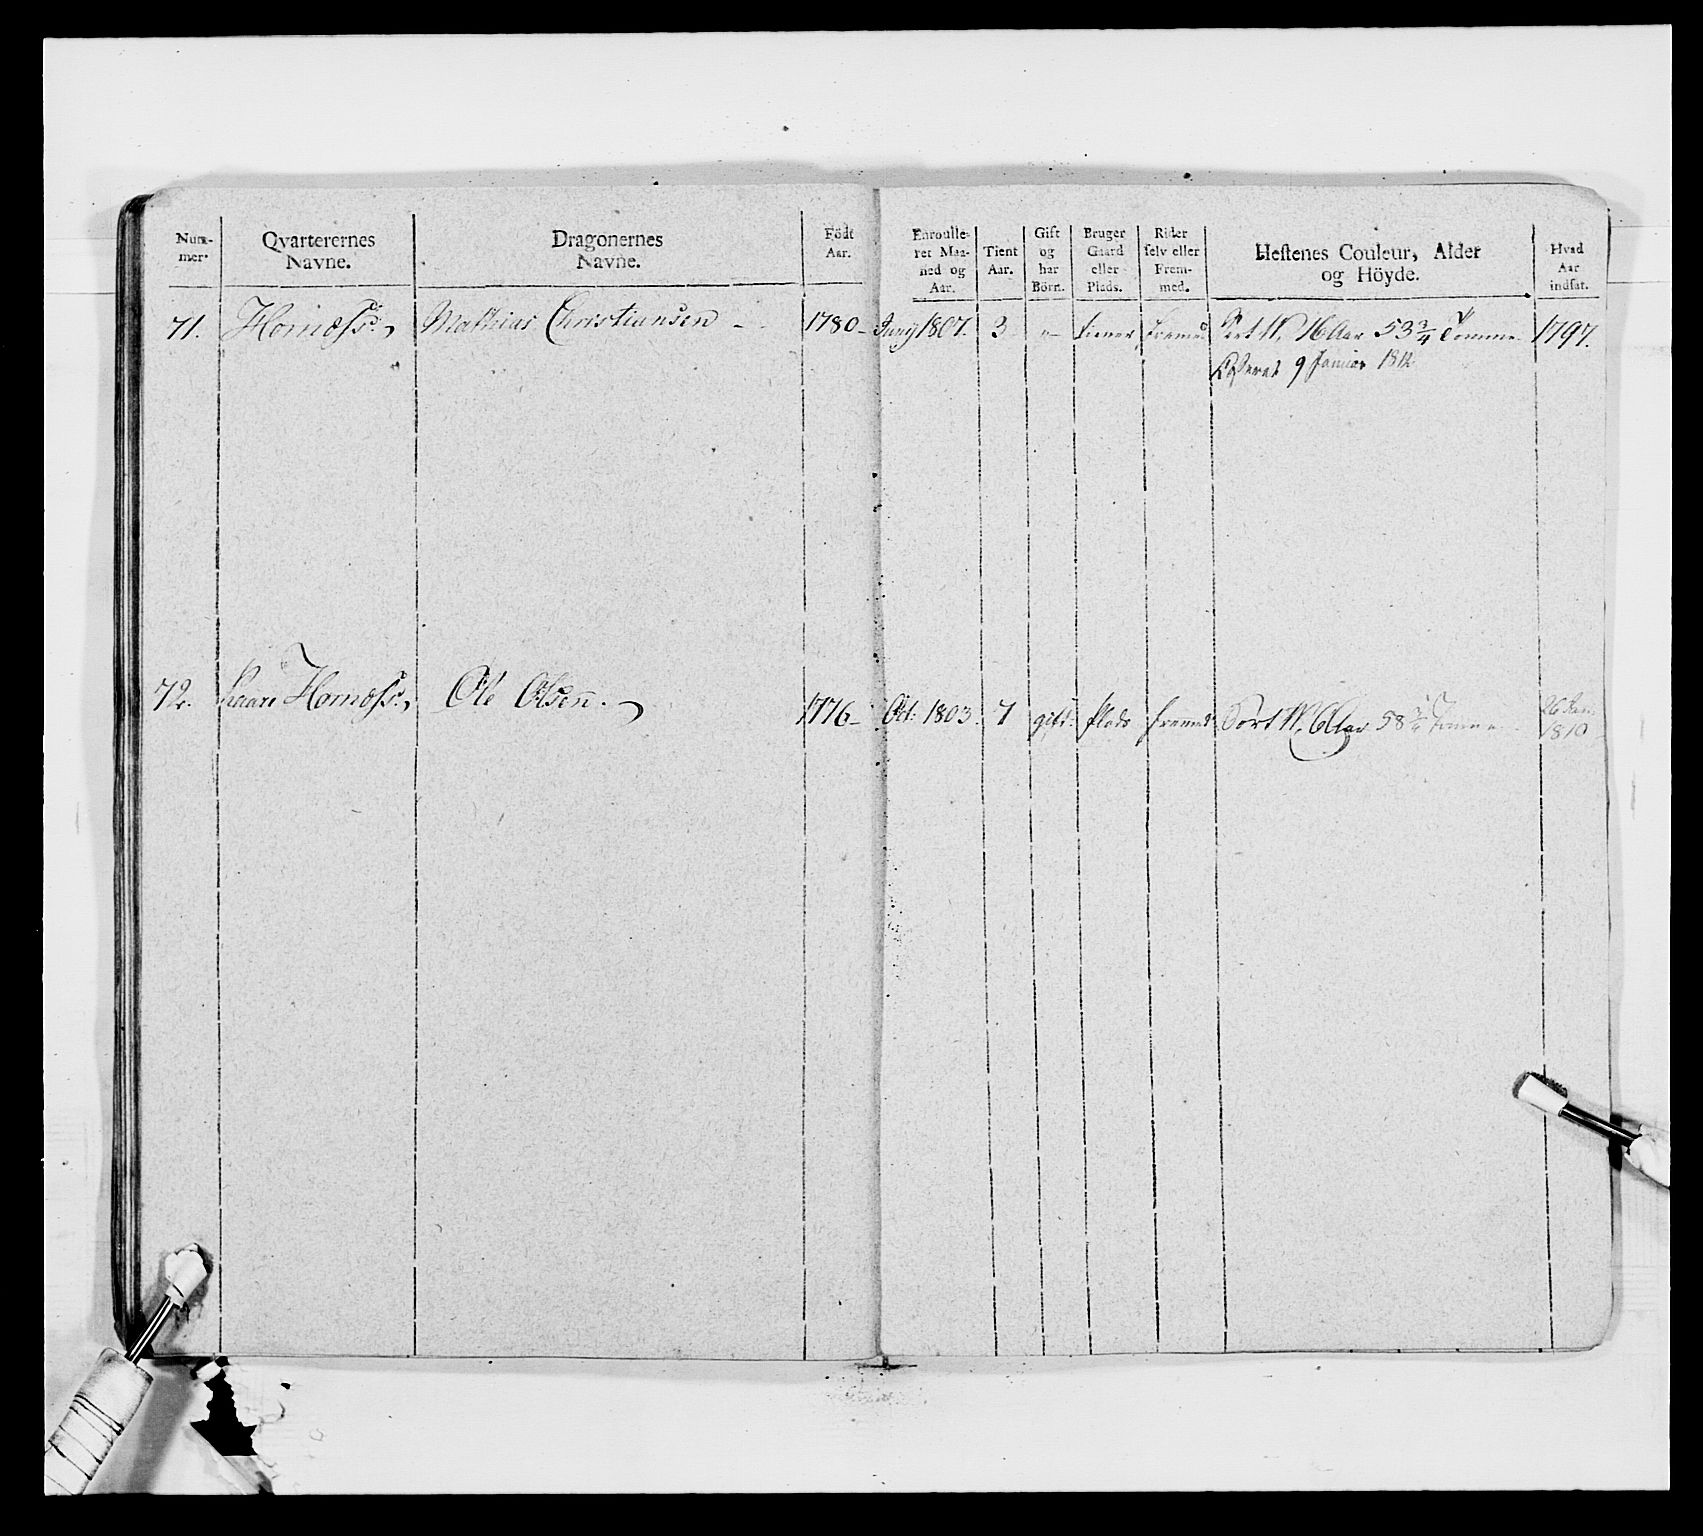 Num-
mer.
Qvarterernes
Navne.
Dragonernes
Navne.
Födt
Aar.
Enroulle-
ret Maa-
ned og
Aar.
Tient
Aar.
Gift
og
har
Börn.
Bruger
Gaard
eller
Plads.
Rider
selv eller
Frem-
med.
Hestenes Couleur, Alder
og Höyde.
Hvad
Aar
indsat.
71. Hornæss Mathias Christiansen - 1780 - Juny 1807. 3 " tiener fremed Sort W. 16 Aar 53 3/4 Tomme 1797.
Casseret 9 Januar 1812
72. Hornæss Ole Olsen. 1776 - Oct: 1803. 7 gift Plads fremed Sort W. 6 Aar 58 Tomme 26
1810